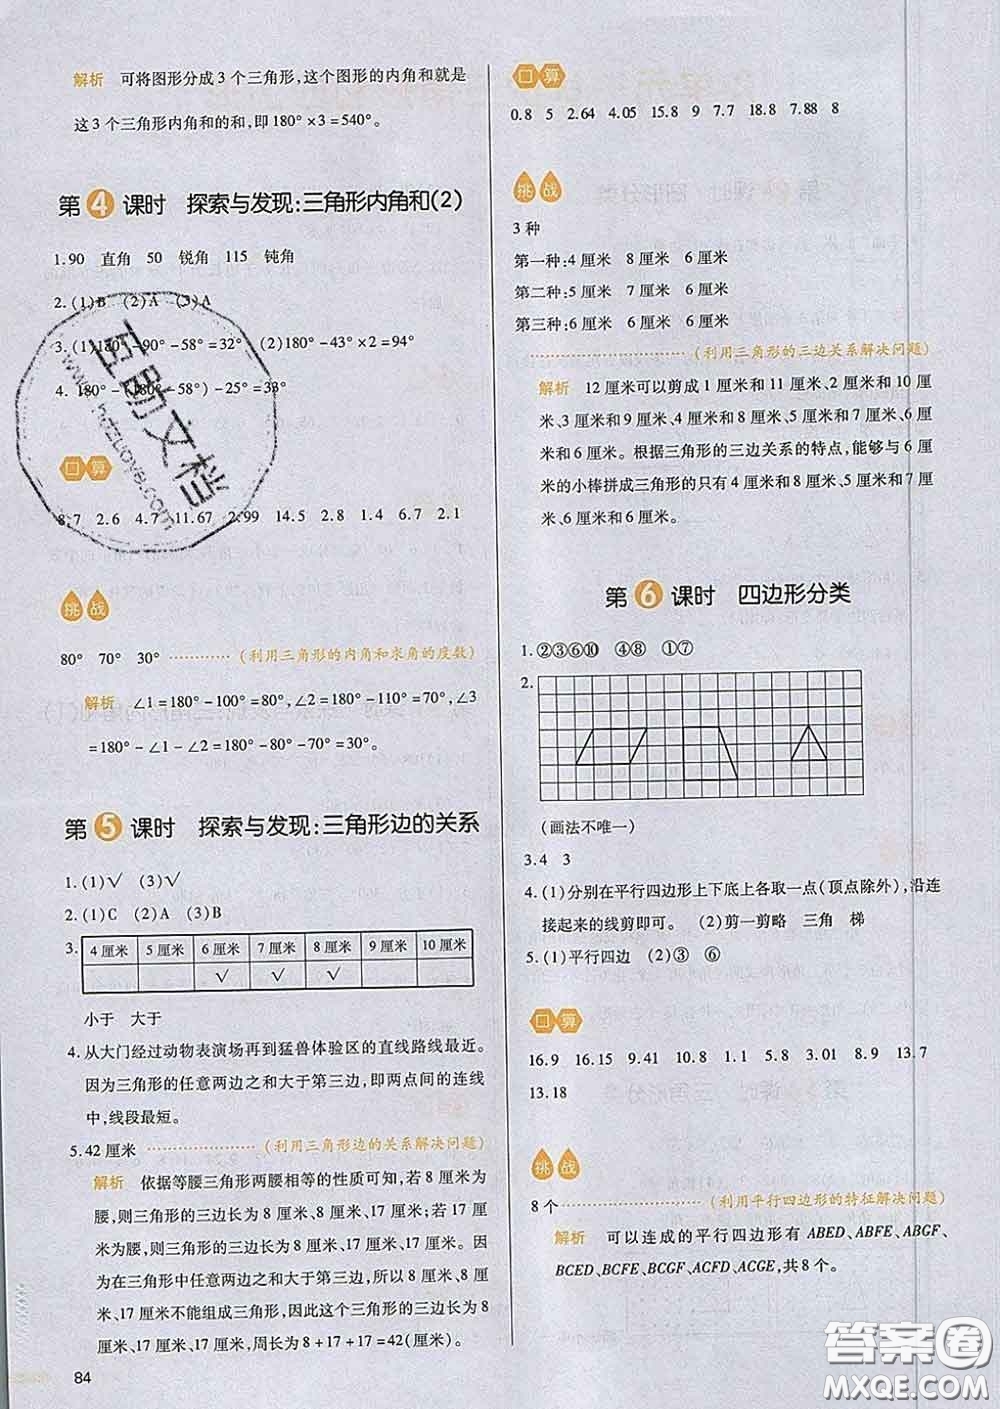 解析 可将图形分成3个三角形,这个图形的内角和就是
这3个三角形内角和的和,即180°×3=540°。
第4课时 探索与发现:三角形内角和(2)
1.90 直角 50 锐角 115 钝角
2.(1)B (2)A (3)A
3.(1)180°-90°-58°=32° (2)180°-43°×2=94°
4.180°-(180°-58°)-25°=33°
口算
8.7 2.6 4.7 11.67 2.99 14.5 2.8 1.4 6.7 2.1
挑战
80° 70° 30° (利用三角形的内角和求角的度数)
解析 ∠1=180°-100°=80°,∠2=180°-110°=70°,∠3
=180°-∠1-∠2=180°-80°-70°=30°。
第5课时 探索与发现:三角形边的关系
1.(1)√ (3)√
2.(1)C (2)A (3)B
3. 4厘米 5厘米 6厘米 7厘米 8厘米 9厘米 10厘米
√ √ √
小于 大于
4.从大门经过动物表演场再到猛兽体验区的直线路线最近。
因为三角形的任意两边之和大于第三边,即两点间的连线
中,线段最短。
5.42厘米 (利用三角形边的关系解决问题)
解析 依据等腰三角形两腰相等的性质可知,若8厘米为
腰,则三角形的三边长为8厘米、8厘米、17厘米;若17厘
米为腰,则三角形的三边长为8厘米、17厘米、17厘米。因
为在三角形中任意两边之和大于第三边,所以8厘米、8厘
米、17厘米不能组成三角形,因此这个三角形的三边长为8
厘米、17厘米、17厘米,周长为8+17+17=42(厘米)。
84
口算
0.8 5 2.64 4.05 15.8 9 7.7 18.2 7.88 8
挑战
3种
第一种:4厘米 8厘米 6厘米
第二种:5厘米 7厘米 6厘米
第三种:6厘米 6厘米 6厘米
(利用三角形的三边关系解决问题)
解析 12厘米可以剪成1厘米和11厘米、2厘米和10厘
米、3厘米和9厘米、4厘米和8厘米、5厘米和7厘米、6厘
米和6厘米。根据三角形的三边关系的特点,能够与6厘
米的小棒拼成三角形的只有4厘米和8厘米、5厘米和7厘
米、6厘米和6厘米。
第6课时 四边形分类
1.②③⑥⑩ ④⑧ ①⑦
2.
(画法不唯一)
3.4 3
4.(1)分别在平行四边形上下底上各取一点(顶点除外),沿连
接起来的线剪即可。 (2)剪一剪略 三角 梯
5.(1)平行四边 (2)③ ⑥
口算
16.9 16.15 9.41 10.8 1.1 5.8 3.01 8.9 13.7
13.18
挑战
8个 (利用平行四边形的特征解决问题)
解析 可以连成的平行四边形有ABED、ABFE、ABGF、
BCED、BCFE、BCGF、ACFD、ACGE,共8个。
互助文档
www.hdzuoye.com
答案圈
MXQE.COM